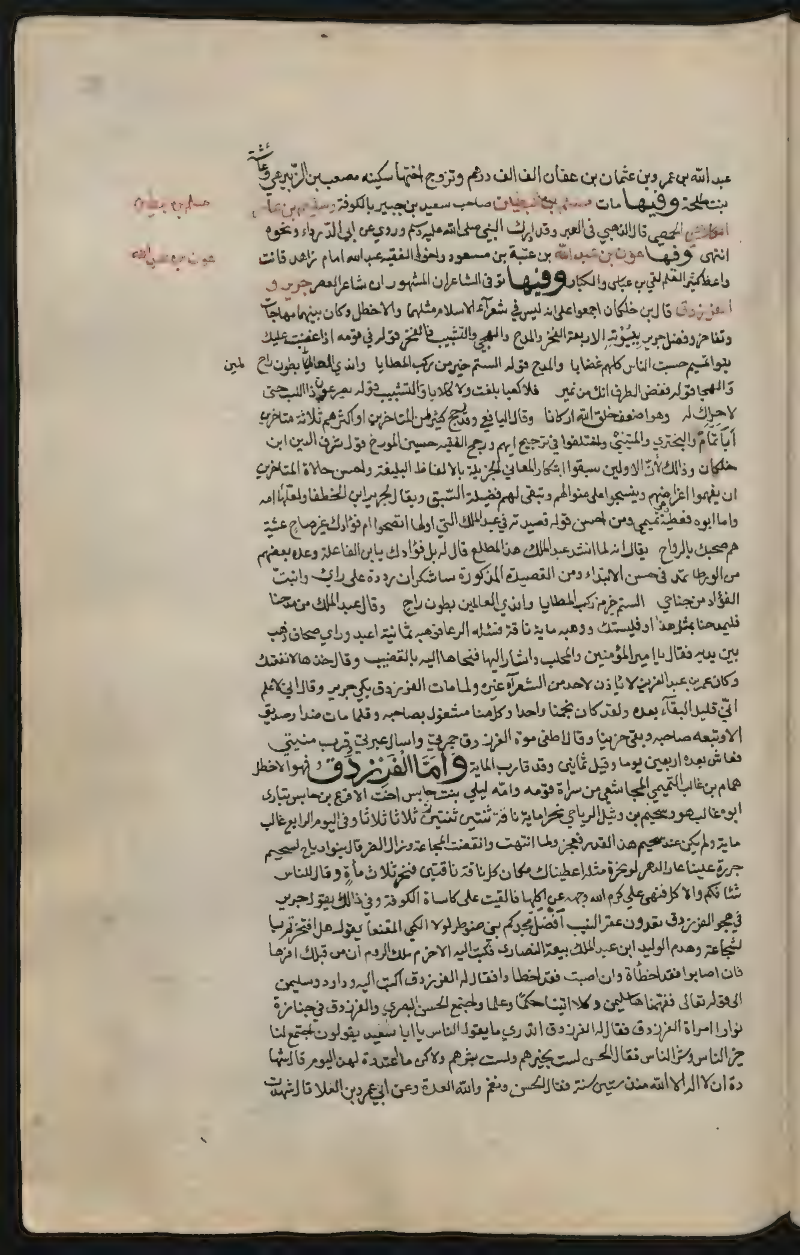 عبد الله بن عمرو بن عثمان بن عفان الف الف درهم وتزوج اختها سكينه مصعب بن الزبير وعائشة
بنت طلحة وفيها مات مسلم بن صاحب سعيد بن جبير بالكوفة وسليم بن عامر
الحمصي قال الذهبي في العبر وقد ادرك النبي صلى الله عليه وسلم وروي عن ابي الدرداء ونحوه
انتهى وفيها عون بن عبد الله بن عتبة بن مسعود واخوه الفقيه عبد الله امام زاهد قانت
واعظ كثير العلم لقي بن عباس والكبار وفيها توفى الشاعران المشهوران شاعر العصر جرير و
الفرزدق قال بن خلكان اجمعوا على انه ليس في شعراء الاسلام مثلهما والاخطل وكان بينهما مهاجات
وتفاخر وفضل جرير ببيوته الاربعة الفخر والمدح والهجي والتشبيب فالفخر قوله في قومه اذا غضبت عليك
بنو تميم حسبت الناس كلهم غضابا والمدح قوله الستم خير من ركب المطايا واندي العالمين بطون راح
والهجا قوله فغض الطرف انك من نمير فلا كعبا بلغت ولا كلابا والتشبيب قوله يصرعن ذا اللب حتى
لا حراك له وهن اضعف خلق الله اركانا وقال اليافعي وقد رجح كثير من المتاخرين او اكثرهم ثلاثة متاخرين
ابا تمام والبختري والمتنبي واختلفوا في ترجيح ايهم ورجح الفقيه حسين المورخ قول شرف الدين ابن
خلكان وذالك لان الاولين سبقوا ابتكار المعاني الجزيلة بالالفاظ البليغة واحسن حالاة المتاخرين
ان يفهموا اغراضهم وينسجوا على منوالهم وتبقى لهم فضيلة السبق ويقال لجرير ابن الخطفا ولعلها امه
واما ابوه فعطية تميمي ومن احسن قوله قصيدته في عبد الملك التي اولها اتصحوا ام فؤادك غير صاح عشية
هم صحبك بالرواح يقال انه لما انشد عبد الملك هذا المطلع قال له بل فؤادك يابن الفاعلة وعده بعضهم
في حسن الابتداء ومن القصيدة المذكورة ساشكر ان رددت على ريشي وانبت
الفؤاد من جناحي الستم خير من ركب المطايا واندي العالمين بطون راح وقال عبد الملك من مدحنا
فليمدحنا بمثل هذا او فليسكت ووهبه ماية ناقة فسئله الرعا فوهبه ثمانية اعبد وراى صحاف ذهب
بين يديه فقال يا امير المؤمنين والمحلب واشار اليها فنحاها اليه بالقضيب وقال خذها لانفعتك
وكان عمر بن عبد العزيز لا ياذن لاحد من الشعراء غيره ولما مات الفرزدق بكى جرير وقال اني لاعلم
اني قليل البقاء بعده ولقد كان نجمنا واحدا وكل منا مشغول بصاحبه وقلما مات ضدا وصديق
الا وتبعه صاحبه وبقى حزينا وقال اطفى موت الفرزدق جمرتي واسال عبرتي وقرب منيتي
فعاش بعده اربعين يوما وقيل ثمانين وقد قارب الماية واما الفرزدق فهو الاخطل
همام بن غالب التميمي المجاشعي من سراة قومه وامه ليلي بنت حابس اخت الاقرع بن حابس تبارى
ابوه غالب هو وسحيم بن وثيل الرياحي نحرا ماية ناقة ثنتين ثنتين ثم ثلاثا ثلاثا وفي اليوم الرابع غالب
ماية ولم يكن عند سحيم هذا القدر فعجز ولما انتهت وانقضت المجاعة وزال الضر قال بنوا رياح لسحيم
جررت علينا عار الدهر لو نحرت مثله اعطيناك مكان كل ناقة ناقتين فنحر ثلاث مأة وقال للناس
شانكم والاكل فنهى علي كرم الله وجهه عن اكلها فالقيت على كاساة الكوفة وفي ذالك يقول جرير
في هجو الفرزدق تعدون عقر النيب افضل مجدكم بني ضوطر لولا الكمي المقنعا يقول هل افتخرتم بها
لشجاعة وهدم الوليد ابن عبد الملك بيعة النصارى فكتب اليه الاخرم ملك الروم ان من قبلك اقرها
فان اصابوا فقد اخطأة وان اصبت فقد اخطا وافقال له الفرزدق اكتب اليه وداود وسليمن
الى قوله تعالى ففهمناها سليمن وكلا اتينا حكما وعلما واجتمع الحسن البصري والفرزدق في جنازة
نوارا امراة الفرزدق فقال له الفرزدق اتدري ما يقول الناس يا ابا سعيد يقولون اجتمع لنا
خير الناس وشر الناس فقال الحسن لست بخيرهم ولست بشرهم ولاكن ما اعتددت لهذا اليوم قال شها
دة ان لا اله الا الله منذ ستين سنة فقال الحسن ونعم والله العدة وعن ابي عمرو بن العلا قال شهدت
عون بن عبد الله